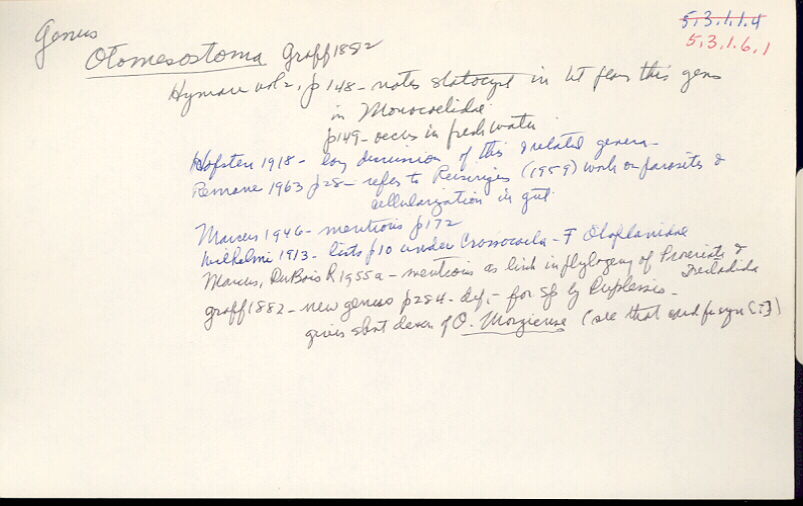 Genus
5.3.1.1.4
5.3.1.6.1
Otomesostoma Graff 1882
Hyman vol 2, p 148 - notes statocyst in this genus
in Monocoelidae
p149 - occurs in freshwater
Hofsten 1918 - long discussion of this & related genera -
Remane 1963 p28 - refers to Reisinger's (1959) work on parasites &
cellularization in gut
Marcus 1946 - mentions p172
Wilhelmi 1913 - lists p10 under Crossocoela - F Otoplanidae
Marcus, DuBois R 1955a - mentions as link in phylogeny of Proseriata &
Tricladida
Graff 1882 - new genus p284 - def. - for sp by Duplessis -
gives short descr of O. Morgiense (see that card for syn)